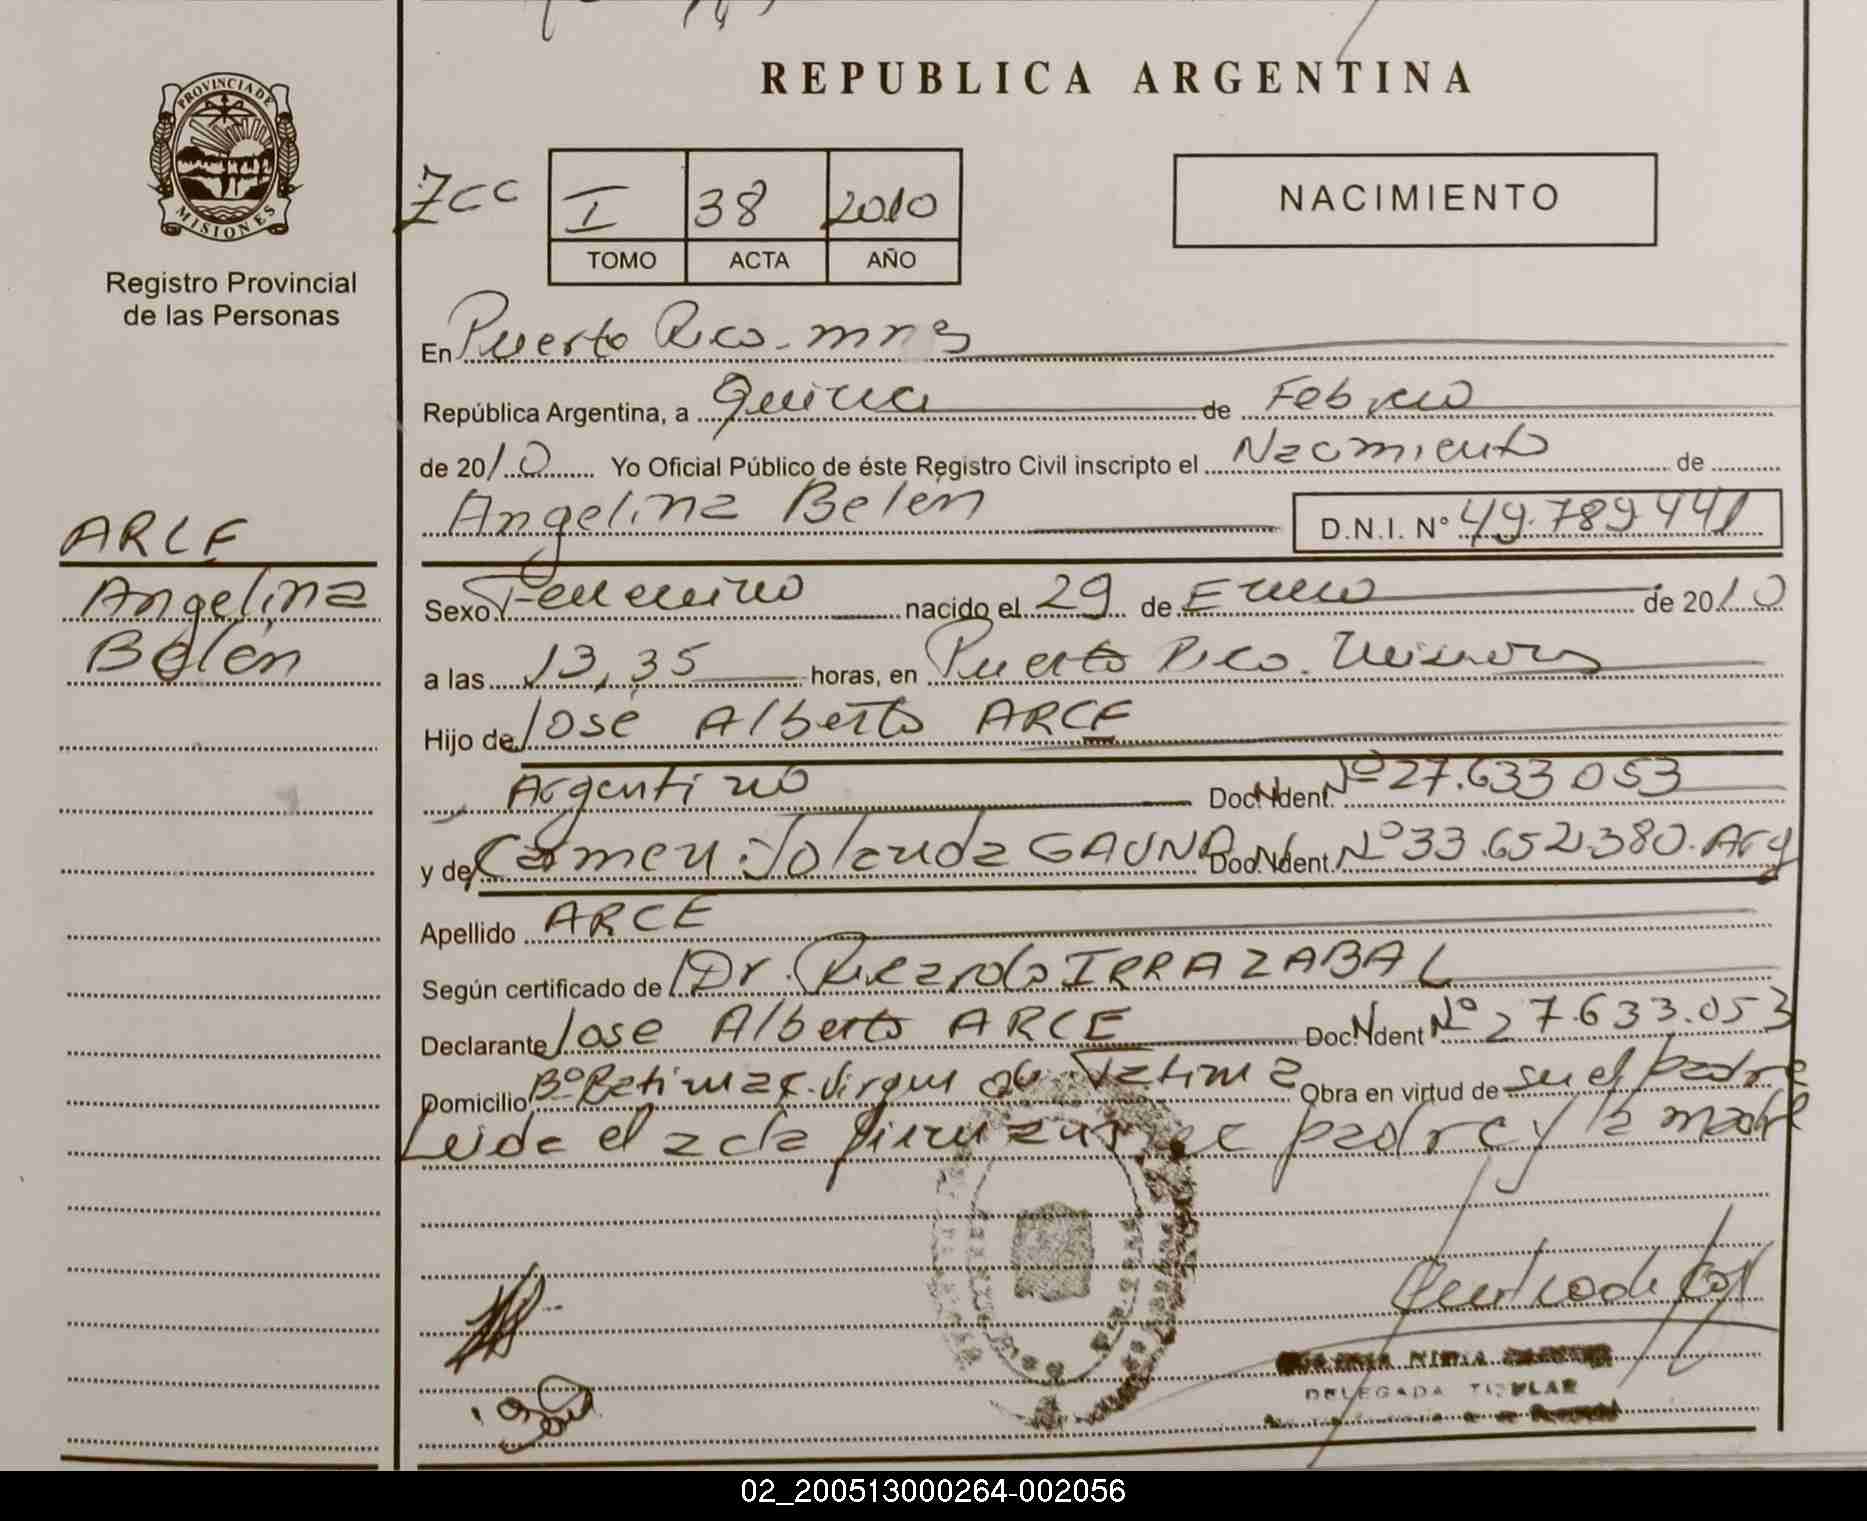 REPUBLICA ARGENTINA
PROVINCIA DE
MISIONES
Registro Provincial
de las Personas
I 38 2010
TOMO ACTA AÑO
NACIMIENTO
En Puerto Rico. mnes
República Argentina, a Quince de Febrero
de 2010 Yo Oficial Público de éste Registro Civil inscripto el Nacimiento de
Angelina Belén D.N.I. N° 49.789.441
ARCE
Angelina
Belén
Sexo Femenino nacido el 29 de Enero de 2010
a las 13,35 horas, en Puerto Rico. Misiones
Hijo de José Alberto ARCE
Argentino Doc. Ident. Nº 27.633.053
y de Carmen Yolanda GAUNA Doc. Ident. Nº 33.652.380. Arg
Apellido ARCE
Según certificado de Dr. Ricardo IRRAZABAL
Declarante José Alberto ARCE Doc. Ident Nº 27.633.053
Domicilio Bº Virgen de Fatima Obra en virtud de ser el padre
Leida el acta firman el padre y la madre
DELEGADA TITULAR
02_200513000264-002056